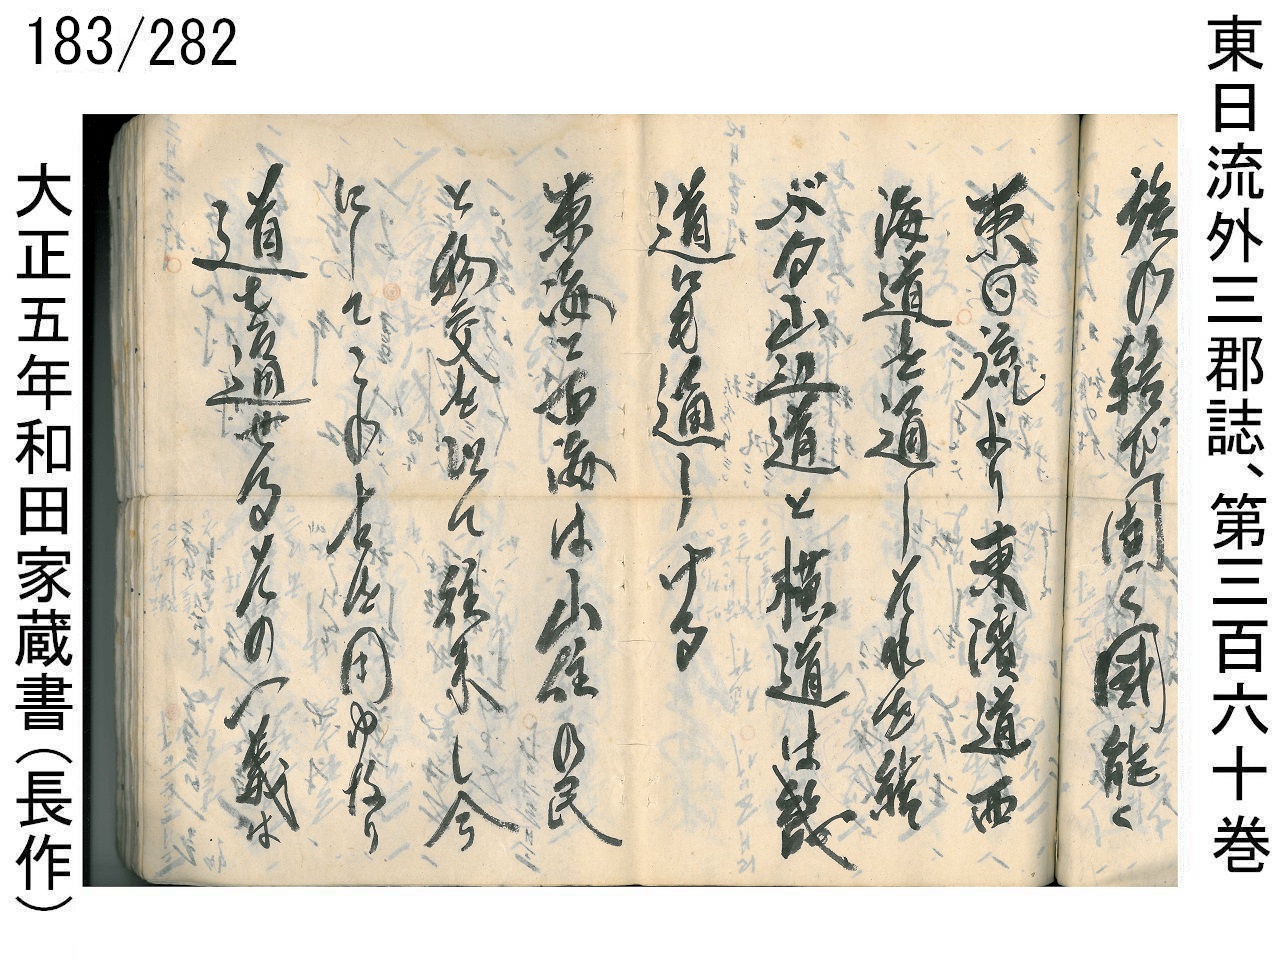 東日流外三郡誌、第三百六十巻
183/282
族の結び固く國能く
東日流より東濱道西
海道を通しそれを継
ぐ山辺道と横道は幾
道にも通しける
東海と西海は山住の民
と物交を以て往来し今
にしてこれ古を用ゆなり
道を通せるその義は
大正五年和田家蔵書(長作)